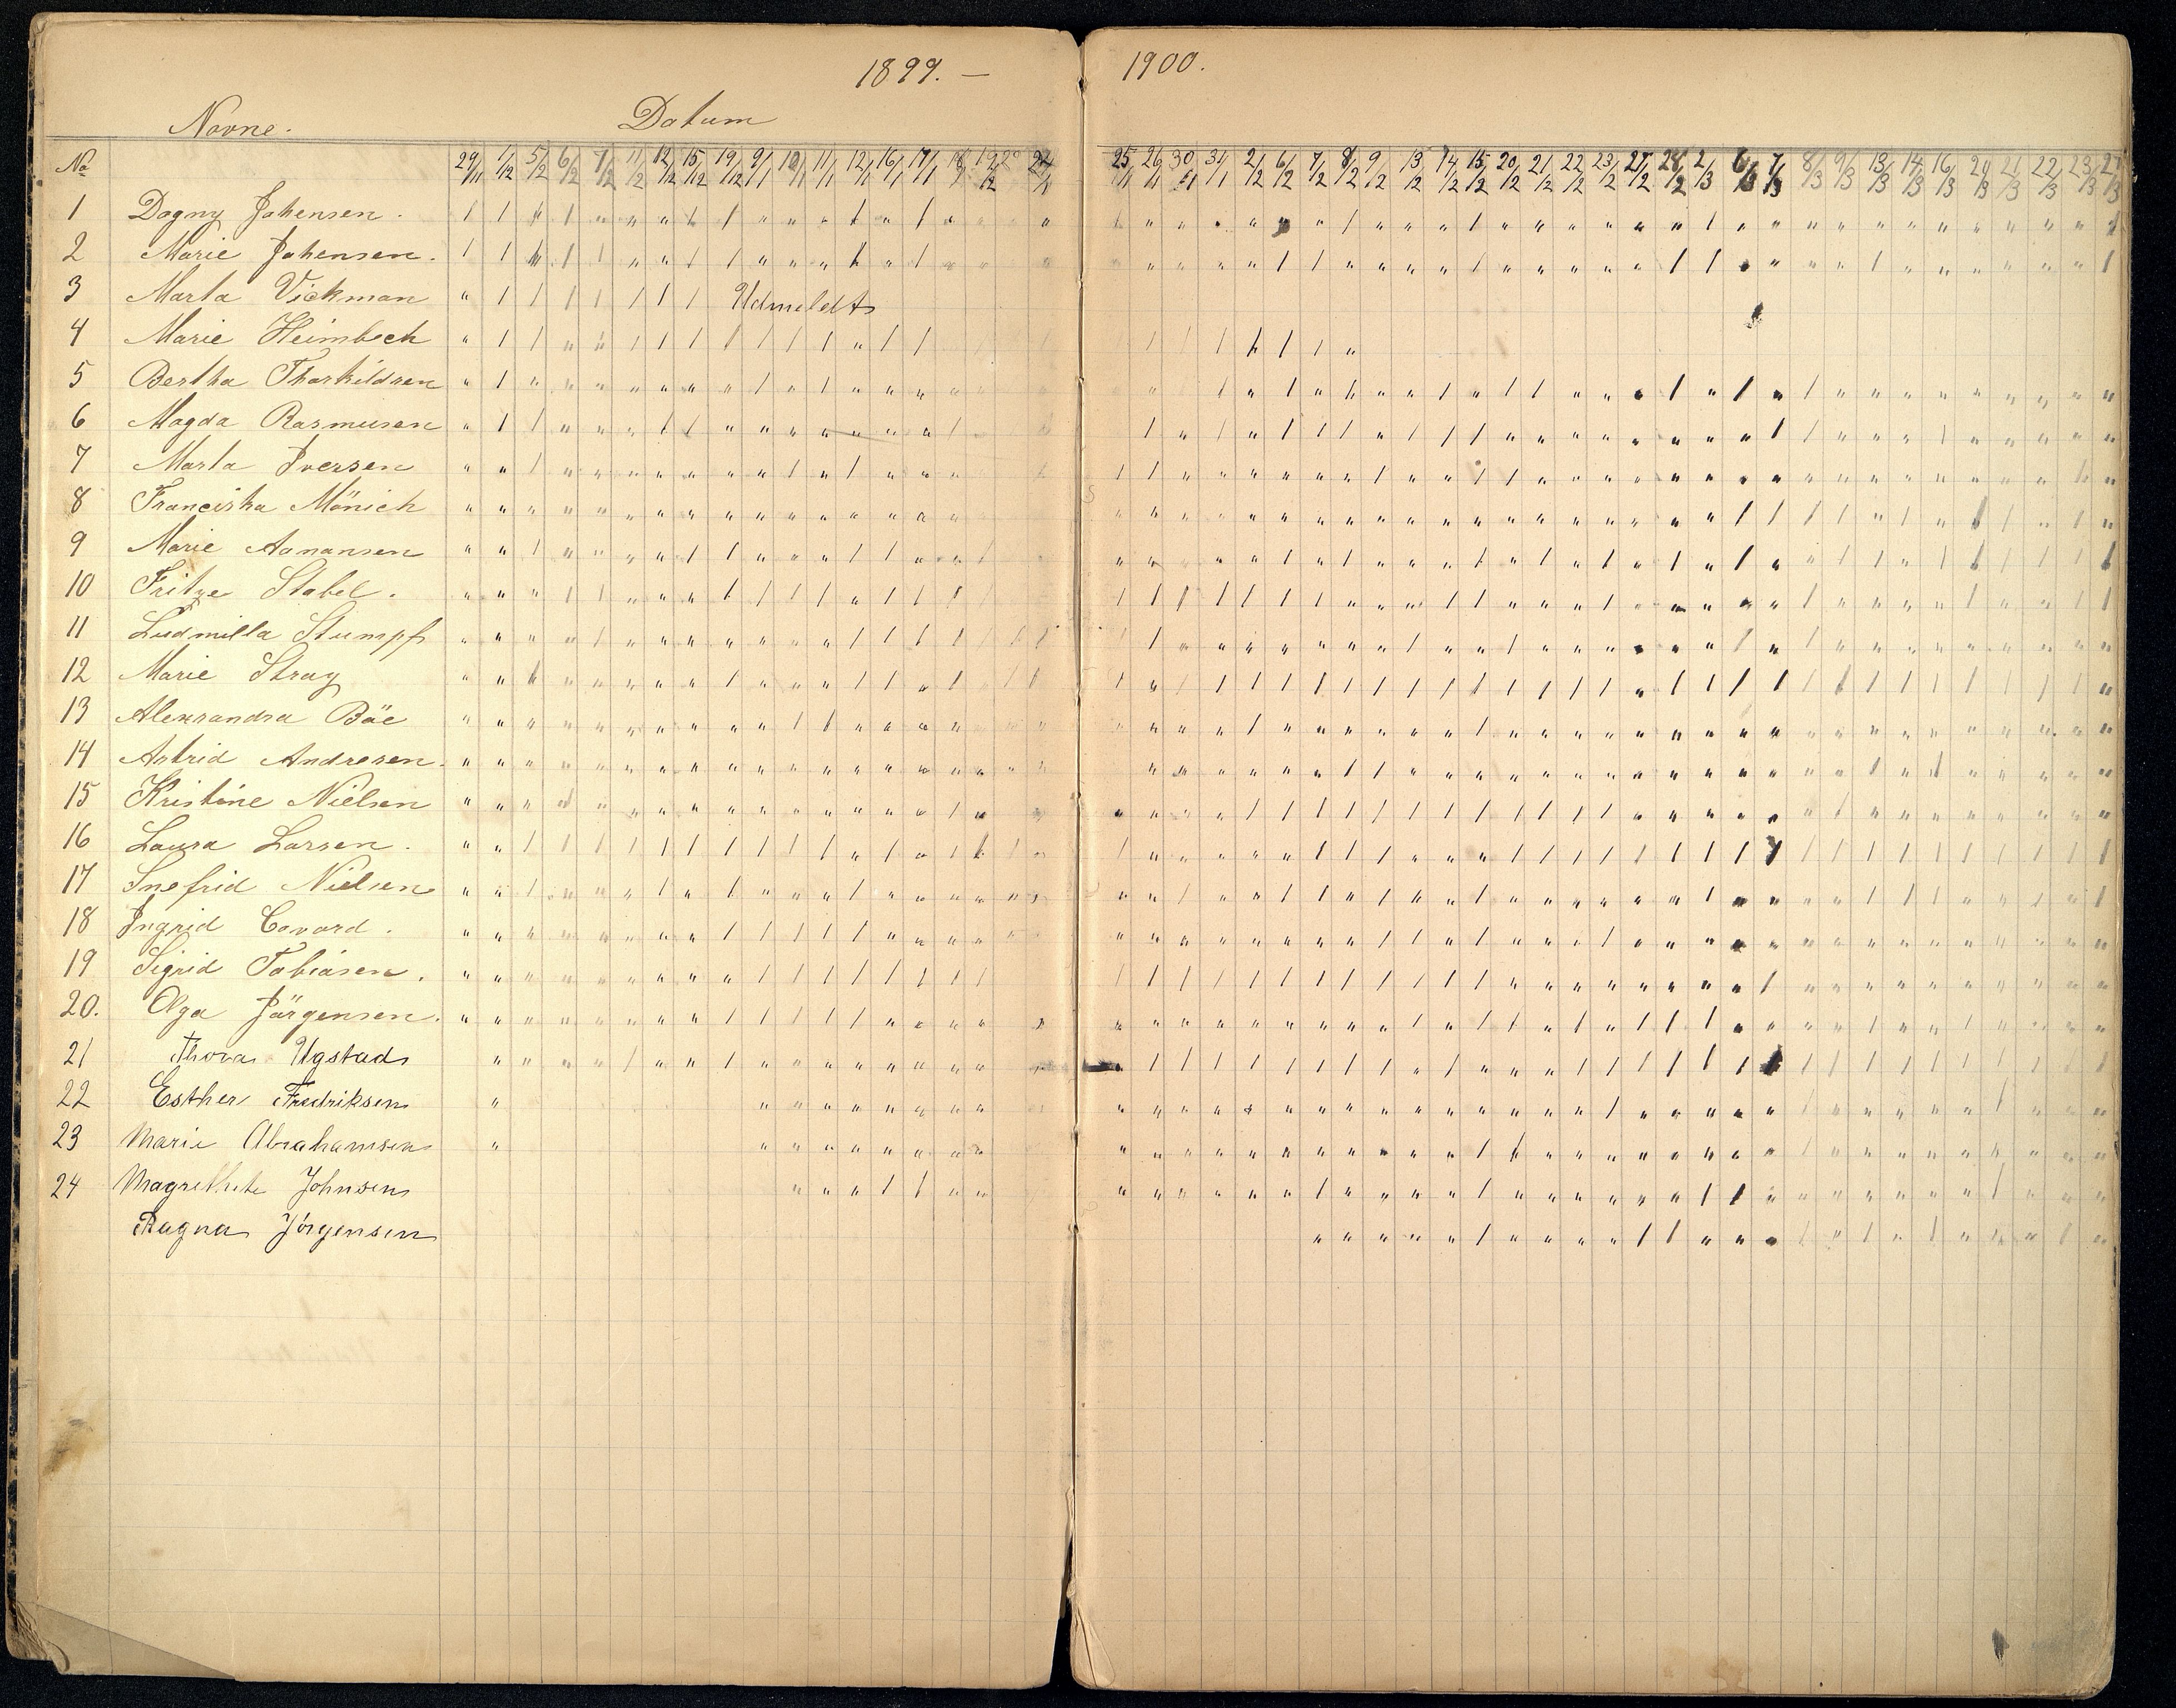 1899. — 1900.
Navne. Datum
No 29/11 1/12 5/12 6/12 7/12 11/12 12/12 15/12 19/12 9/1 10/1 11/1 12/1 16/1 17/1 18/1 25/1 26/1 30/1 31/1 2/2 6/2 7/2 8/2 9/2 13/2 14/2 15/2 20/2 21/2 22/2 23/2 27/2 28/2 2/3 6/3 7/3 8/3 9/3 13/3 14/3 16/3 20/3 21/3 22/3 23/3 27/3
1 Dagny Johensen.
2 Marie Johensen.
3 Marta Vickman Udmeldt
4 Marie Heimbeck
5 Bertha Thorkildsen
6 Magda Rasmusen
7 Marta Iversen
8 Franciska Mönich
9 Marie Aamansen
10 Fritze Stabel.
11 Ludmilla Stumpf
12 Marie Stray
13 Alexsandra Böe
14 Astrid Andresen.
15 Kristine Nielsen
16 Laura Larsen.
17 Snefrid Nielsen
18 Ingrid Covard.
19 Sigrid Tobiasen.
20. Olga Jörgensen.
21 Thora Ugstad
22 Esther Fredriksen
23 Marie Abrahamsen
24 Magrethete Johnsen
Ragna Jörgensen